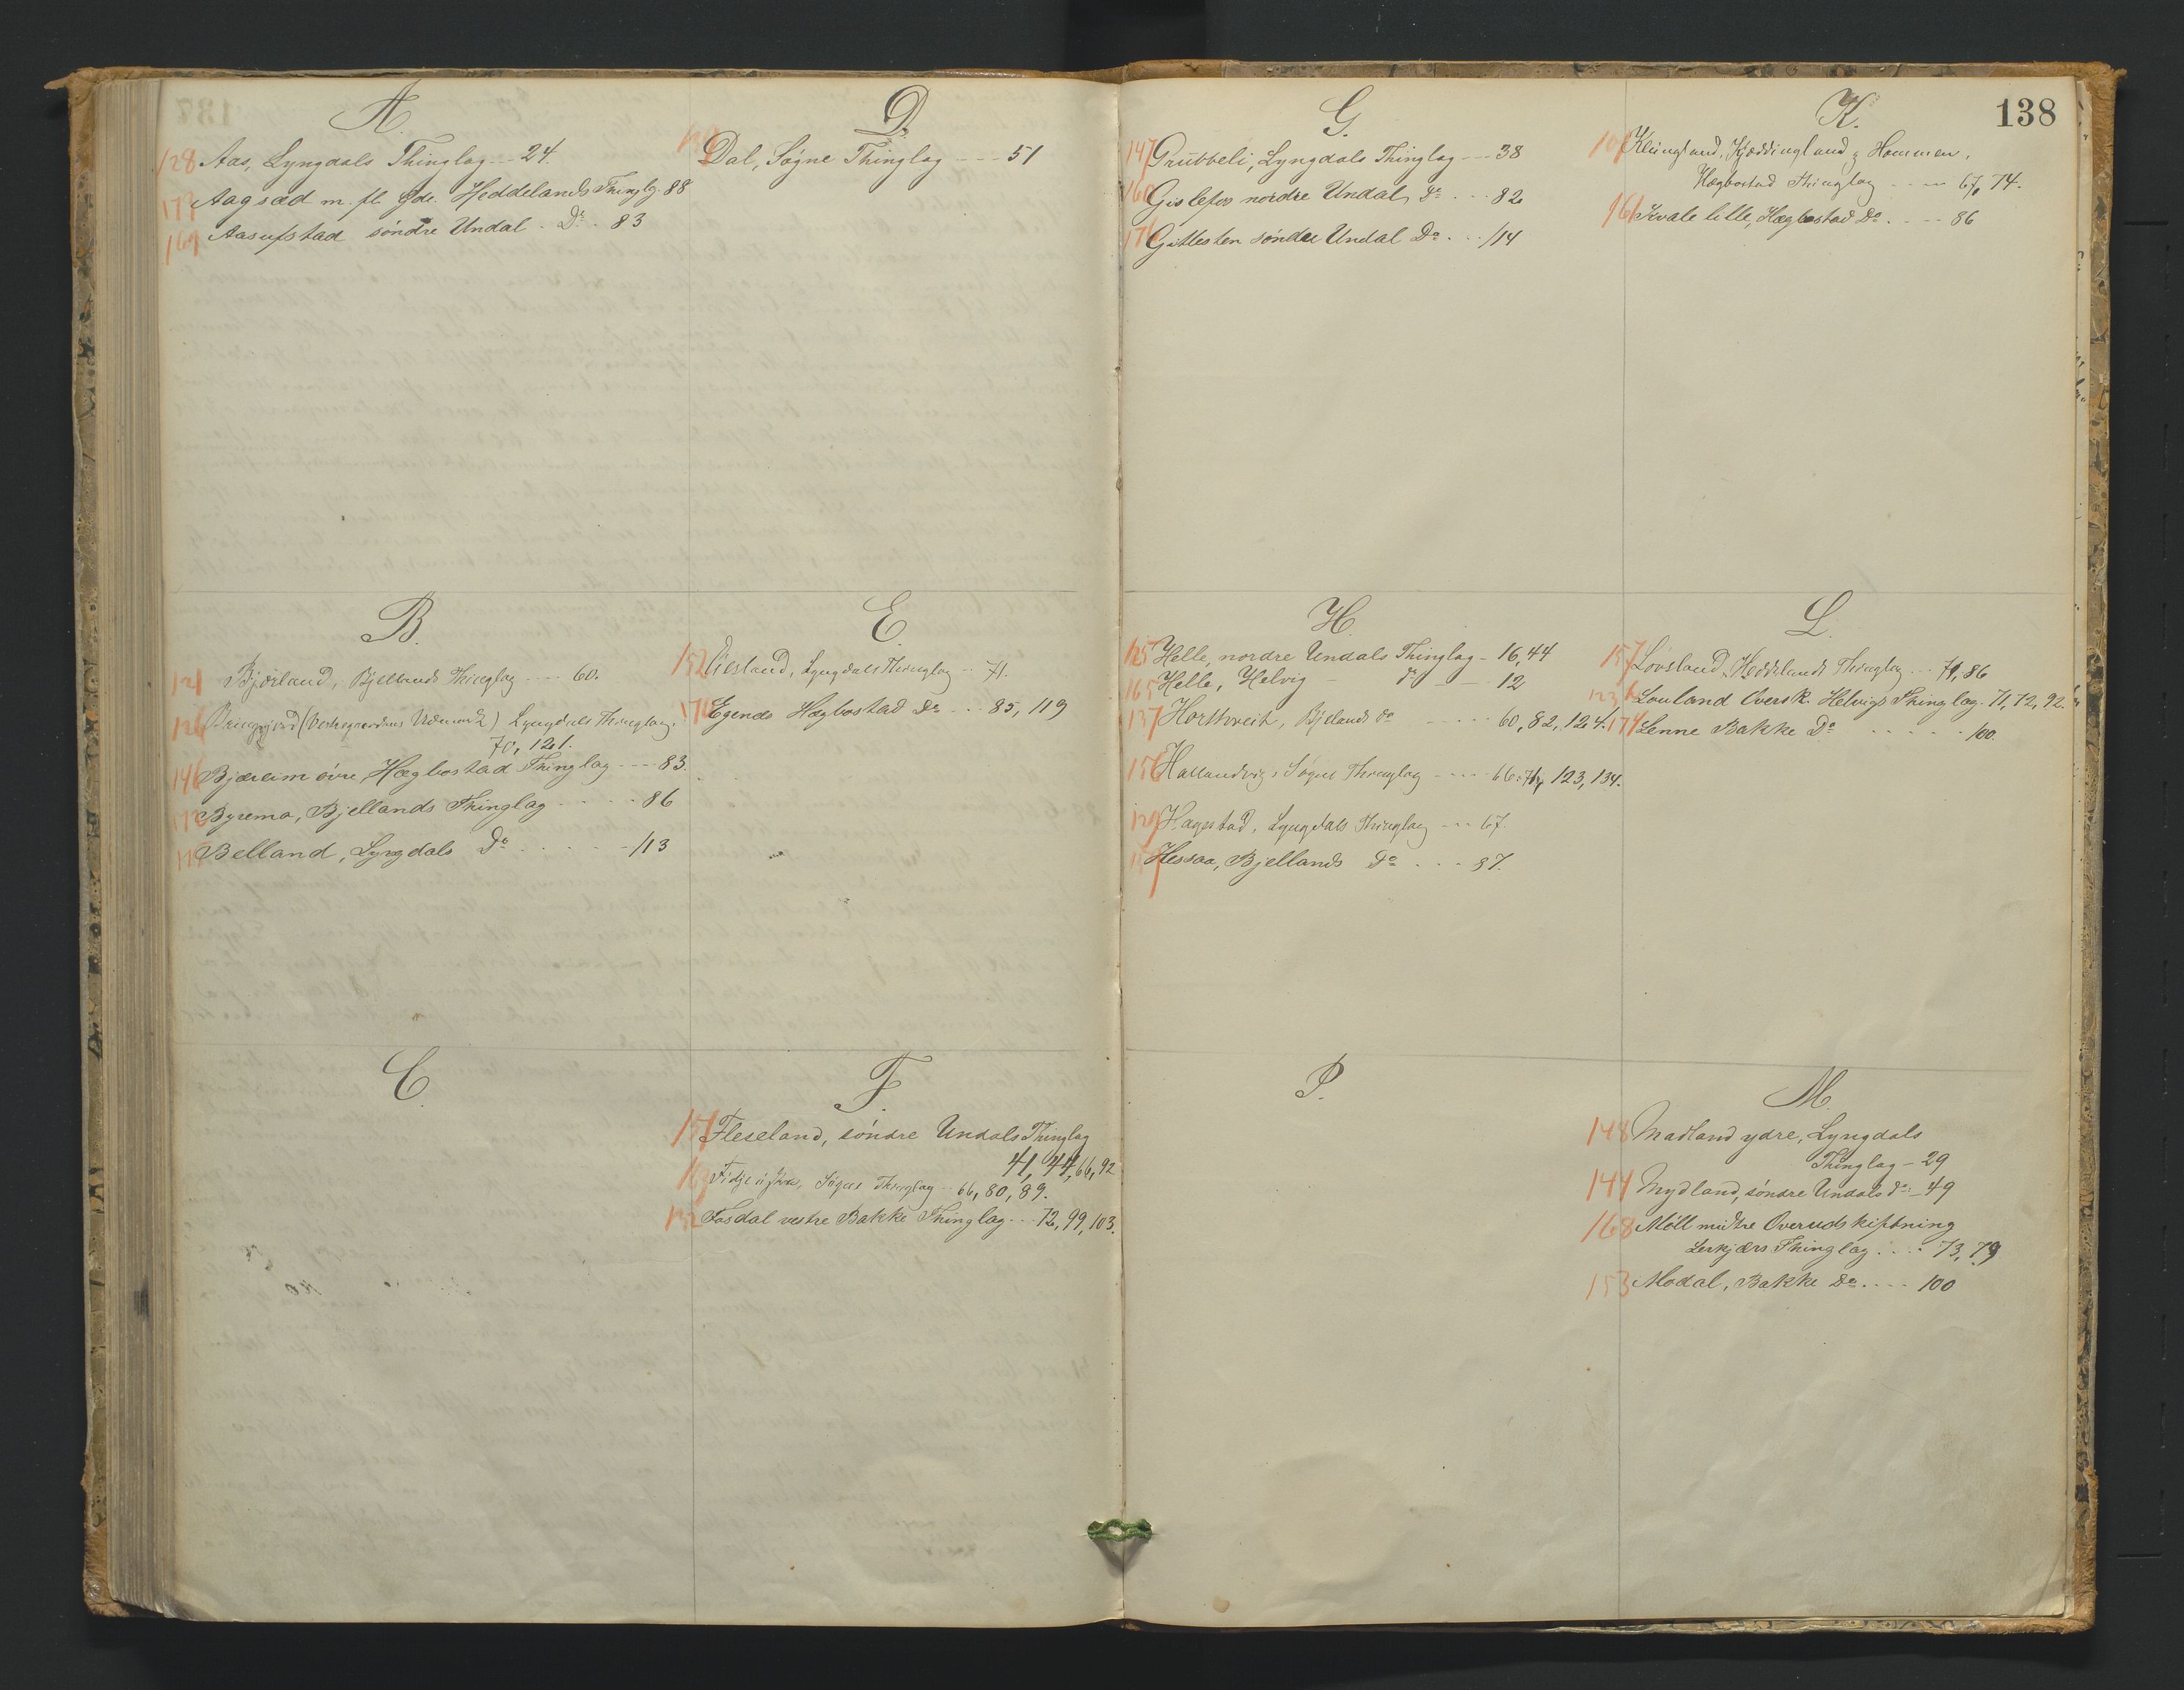 A.
128 Aas, Lyngdals Thinglag - - 24.
177 Aagsæd m. fl. Gde. Heddelands Thinglg. 88
169 Aasufstad søndre Undal . Do . 83
B.
121 Bjørland, Bjellands Thinglag - - - 60.
126 (Vestregaardens Udmark) Lyngdals Thinglag,
70, 121.
146 Bjæreim övre, Hægbostad Thinglag - - - 83.
172 Byremo, Bjellands Thinglag - - - - 86
Belland, Lyngdals Do - - - - - 113
C.
D.
Dal, Søgne Thinglag - - - 51
E.
152 Lyngdals Thinglag - - 71.
170 Egenes Hægbostad Do - - - 85, 119
F.
151 Fleseland, søndre Undals Thinglag
41, 44, 66, 92
163 Søgne Thinglag - - 66, 80, 89.
Fosdal vestre Bakke Thinglag - - - 72, 99, 103.
138
G.
147 Grubbeli, Lyngdals Thinglag - - - 38
160 Gislefos nordre Undal, Do . - - 82
Gitlesten søndre Undal Do. - - 114
H.
125 Helle, nordre Undals Thinglag - 16, 44
165 Helle, Helvig - do - - 12
137 Hortveit, Bjelands do - - - - 60, 82, 124.
156 Hallandvig, Søgne Thinglag - - - - 66, 74, 123, 134.
129 Hagestad, Lyngdals Thinglag - - - 67.
Hessaa, Bjellands Do . . . - 87.
P.
K.
Klungland, Kjeddingland & Hommen,
Hægbostad Thinglag - - - - 67, 74.
161 Kvale lille, Hægbostad Do. - - - 86
L.
157 Lovsland, Heddelands Thinglag . . 71, 86
Louland Oversk. Helvigs Thinglag. 71, 72, 92.
174 Lenne Bakke Do - - - - - 100.
M.
148 Madland ydre, Lyngdals
Thinglag - 29
144 Mydland, søndre Undals do - 49
168 Möll midtre Overudskiftning
Lerkjærs Thinglag . . . - 73, 79
153 Modal, Bakke Do. - - - 100